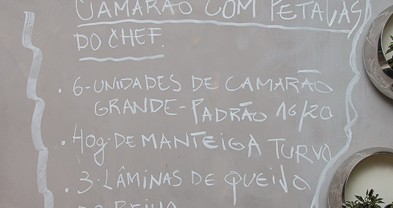 CAMARÃO COM PETALAS
DO CHEF.
• 6-UNIDADES DE CAMARÃO
GRANDE-PADRÃO 16/20
• 40g-DE MANTEIGA TURVO
• 3-LÂMINAS DE QUEIJO